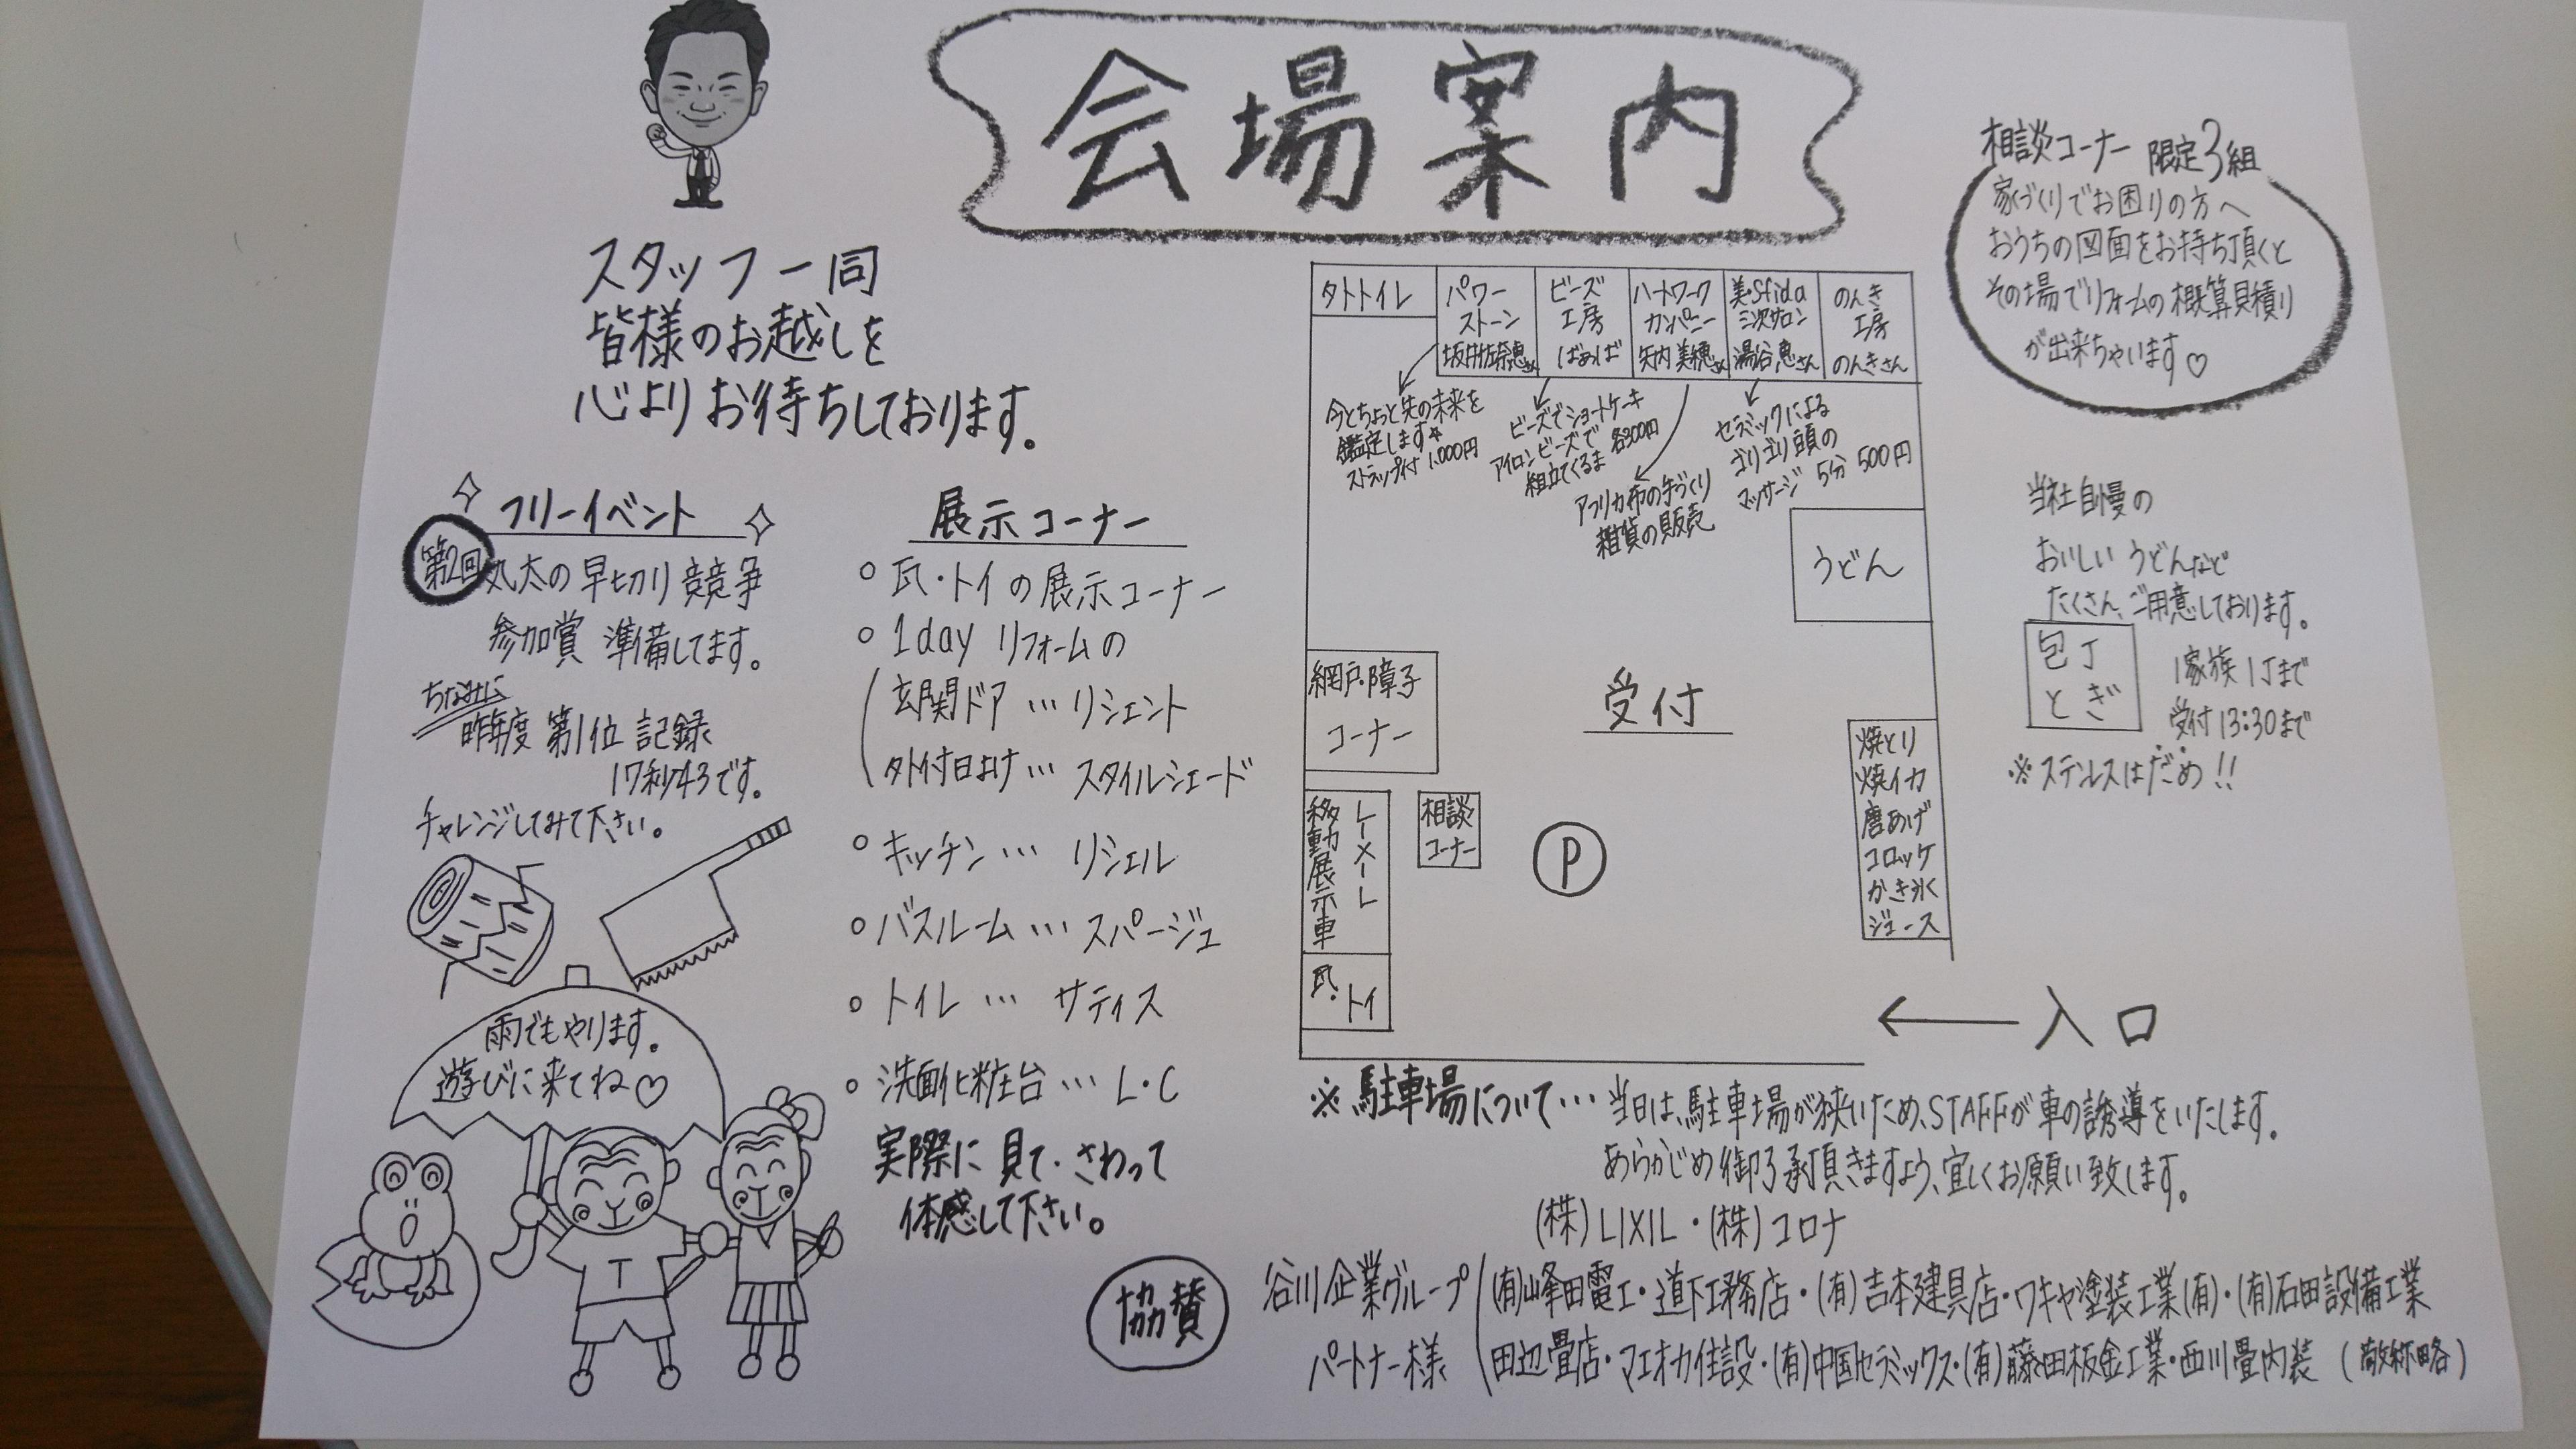 会場案内
スタッフ一同
皆様のお越しを
心よりお待ちしております。
相談コーナー 限定3組
家づくりでお困りの方へ
おうちの図面をお持ち頂くと
その場でリフォームの概算見積り
が出来ちゃいます♡
フリーイベント
第2回 丸太の早切り競争
参加賞 準備してます。
ちなみに
昨年度 第1位 記録
17秒43です。
チャレンジしてみて下さい。
雨でもやります。
遊びに来てね♡
T
展示コーナー
○ 瓦・トイの展示コーナー
○ 1day リフォームの
玄関ドア … リシェント
外付日よけ … スタイルシェード
○ キッチン … リシェル
○ バスルーム … スパージュ
○ トイレ … サティス
○ 洗面化粧台 … L・C
実際に見て・さわって
体感して下さい。
外トイレ
パワー
ストーン
坂井佐奈恵さん
ビーズ
工房
ばぁば
ハートワーク
カンパニー
矢内美穂さん
美・Sfida
三次サロン
湯谷恵さん
のんき
工房
のんきさん
今とちょっと先の未来を
鑑定します☆
ストラップ付 1,000円
ビーズでショートケーキ
アイロンビーズで 各300円
組立てくるま
アフリカ布の手づくり
雑貨の販売
セラミックによる
ゴリゴリ頭の
マッサージ 5分 500円
うどん
網戸・障子
コーナー
受付
移動展示車
レーメール
相談
コーナー
P
瓦・トイ
焼とり
焼イカ
唐あげ
コロッケ
かき氷
ジュース
← 入口
当社自慢の
おいしい うどんなど
たくさん、ご用意しております。
包丁
とぎ
1家族1丁まで
受付13:30まで
※ステンレスはだめ!!
※駐車場について… 当日は、駐車場が狭いため、STAFFが車の誘導をいたします。
あらかじめ御了承頂きますよう、宜しくお願い致します。
(株)LIXIL・(株)コロナ
協賛
谷川企業グループ
パートナー様
(有)峰田電工・道下工務店・(有)吉本建具店・ワキヤ塗装工業(有)・(有)石田設備工業
田辺畳店・マエオカ住設・(有)中国セラミックス・(有)藤田板金工業・西川畳内装 (敬称略)